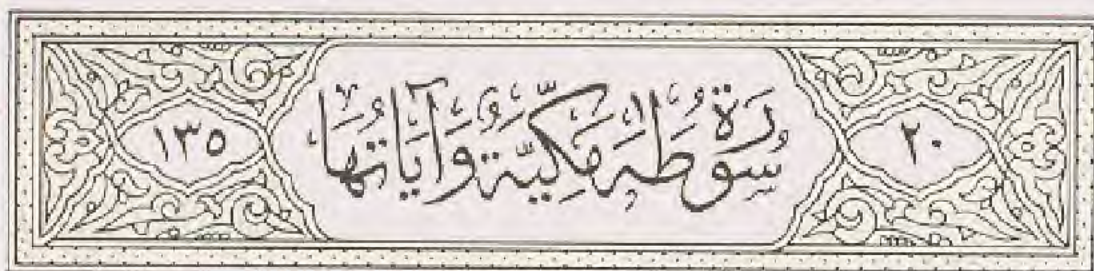 ٢٠ سُورَةُ طٰهٰ مَكِّيَّةٌ وَآيَاتُهَا ١٣٥